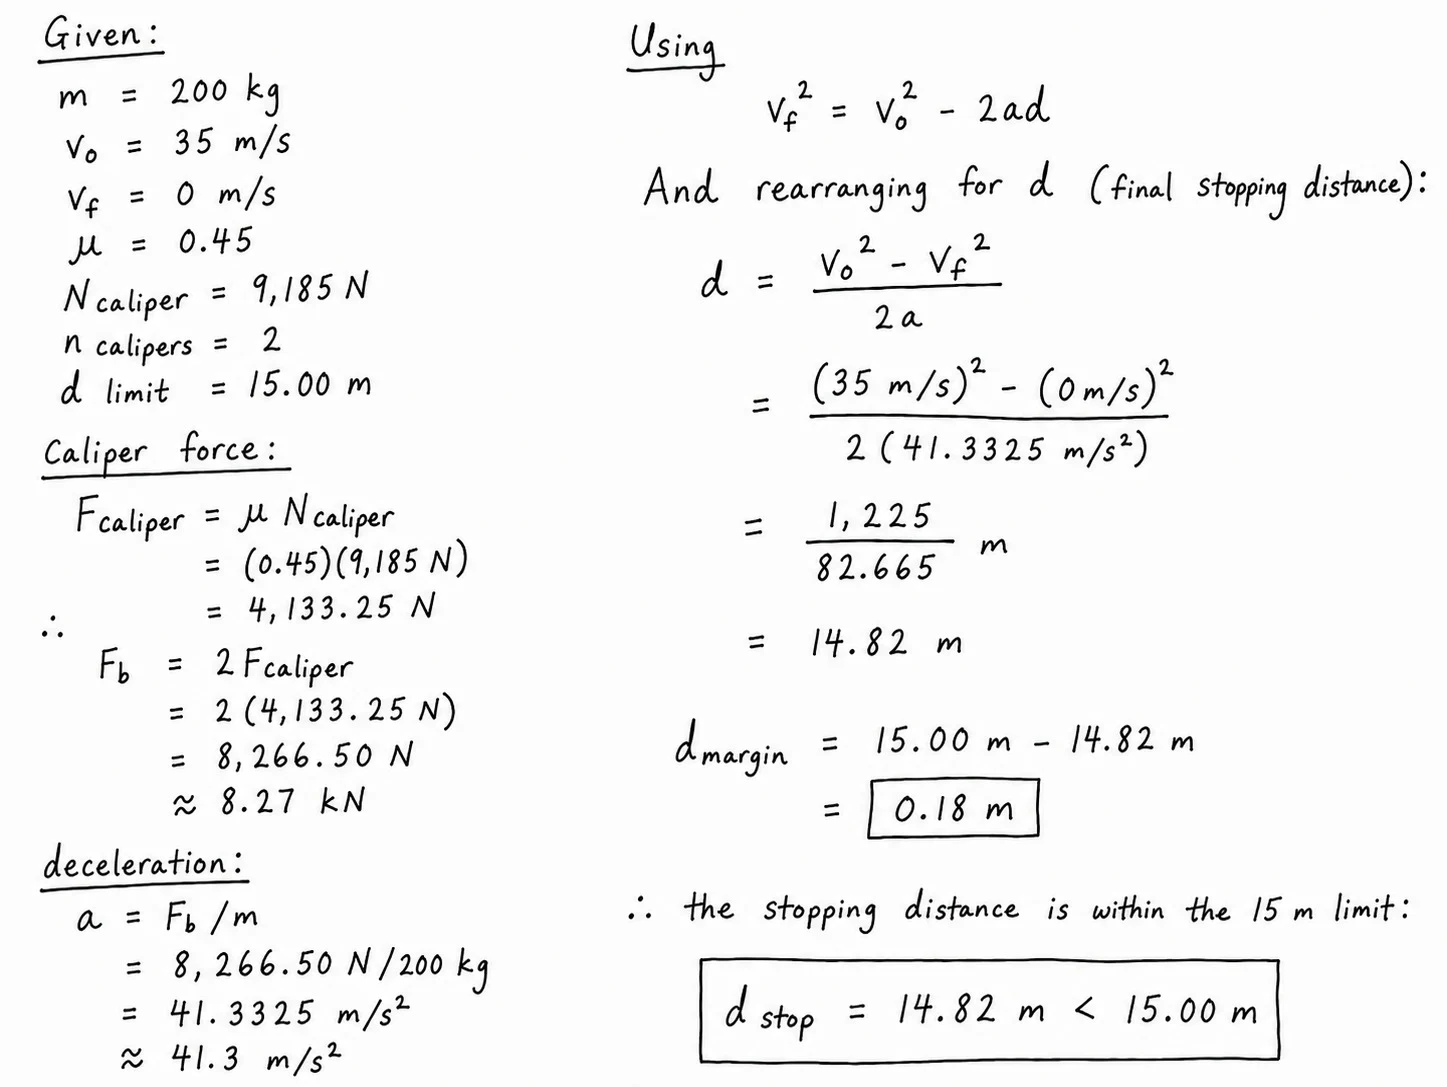 Given:
m = 200 kg
v₀ = 35 m/s
v_f = 0 m/s
μ = 0.45
N caliper = 9,185 N
n calipers = 2
d limit = 15.00 m
Caliper force:
F caliper = μ N caliper
= (0.45)(9,185 N)
= 4,133.25 N
∴
F_b = 2 F caliper
= 2 (4,133.25 N)
= 8,266.50 N
≈ 8.27 kN
deceleration:
a = F_b / m
= 8,266.50 N / 200 kg
= 41.3325 m/s²
≈ 41.3 m/s²
Using
v_f² = v₀² - 2ad
And rearranging for d (final stopping distance):
d = (v₀² - v_f²) / 2a
= ((35 m/s)² - (0 m/s)²) / 2 (41.3325 m/s²)
= 1,225 / 82.665 m
= 14.82 m
d margin = 15.00 m - 14.82 m
= 0.18 m
∴ the stopping distance is within the 15 m limit:
d stop = 14.82 m < 15.00 m